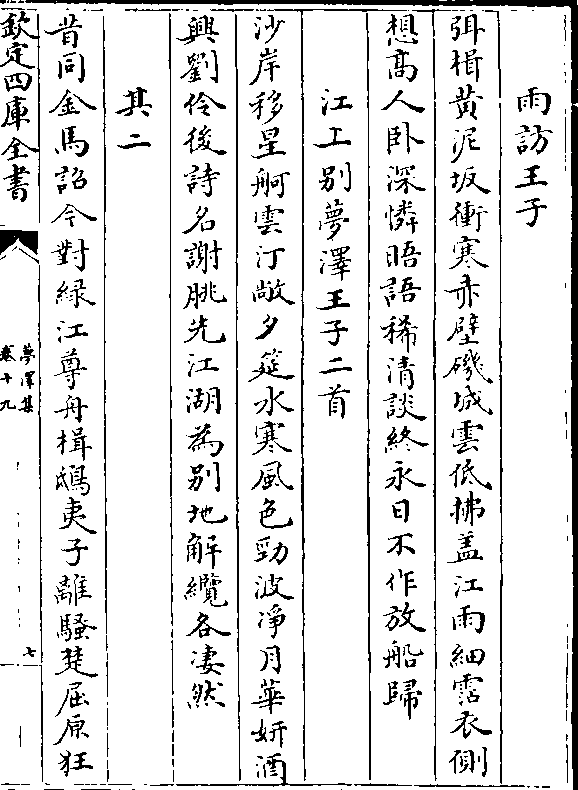 雨訪王子
弭楫黄泥坂衝寒赤壁磯城雲低拂盖江雨細霑衣側
想髙人卧深憐晤語稀清談終永日不作放船歸
江上别夢澤王子二首
沙岸移星舸雲汀敞夕筵水寒風色勁波凈月華妍酒
興劉伶後詩名謝朓先江湖為别地解纜各凄然
其二
昔同金馬詔今對緑江尊舟楫鴟夷子離騷楚屈原狂
欽定四庫全書
夢澤集
卷十九
七